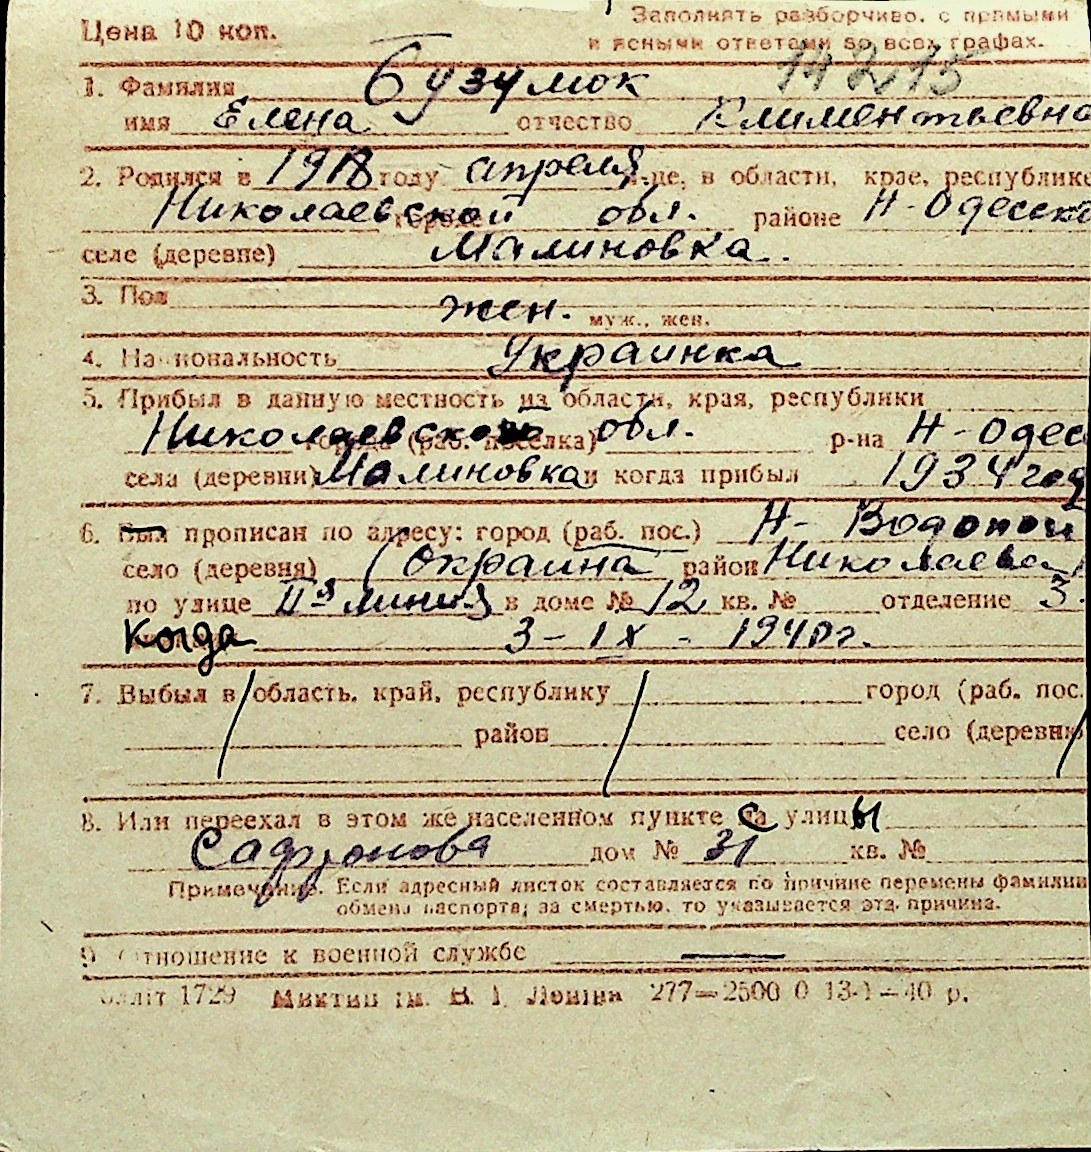 Цена 10 коп.
Заполнять разборчиво, с прямыми
и ясными ответами во всех графах.
14215
1. Фамилия Бузумок
имя Елена отчество Климентьевна
2. Родился в 1918 году апреля м-це, в области, крае, республике
Николаевской городе обл. районе Н-Одесско
селе (деревне) Малиновка.
3. Пол жен. муж., жен.
4. Национальность Украинка
5. Прибыл в данную местность из области, края, республики
Николаевской города (раб. поселка) обл. р-на Н-Одес
села (деревни) Малиновка и когда прибыл 1934 год
6. Был прописан по адресу: город (раб. пос.) Н- Водопой
село (деревня) (окраина район Николаева)
по улице II-я линия в доме № 12 кв. № отделение 3
Когда 3-IX-1940г.
7. Выбыл в область, край, республику город (раб. пос.
район село (деревню
8. Или переехал в этом же населенном пункте с улицы
Сафронова дом № 31 кв. №
Примечание. Если адресный листок составляется по причине перемены фамилии
обмена паспорта, за смертью, то указывается эта причина.
9. Отношение к военной службе —
1729 277—2500 0 13-1—40 р.